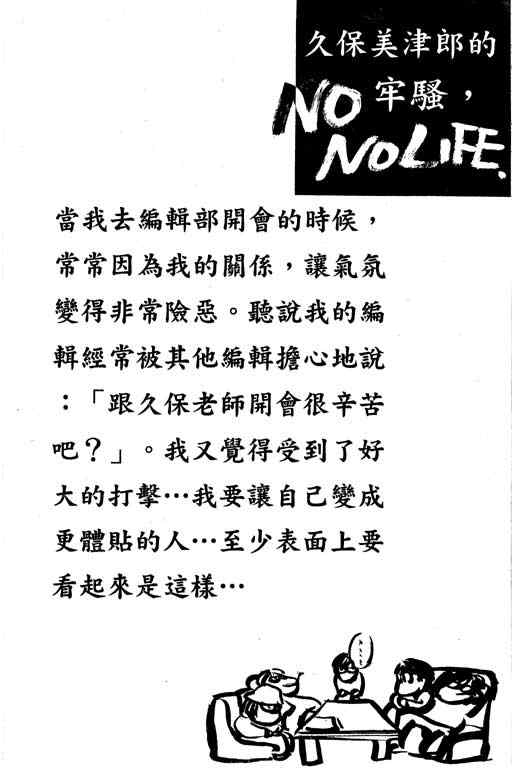 久保美津郎的
NO 牢騷，
NO LIFE.
當我去編輯部開會的時候，
常常因為我的關係，讓氣氛
變得非常險惡。聽說我的編
輯經常被其他編輯擔心地說
：「跟久保老師開會很辛苦
吧？」。我又覺得受到了好
大的打擊…我要讓自己變成
更體貼的人…至少表面上要
看起來是這樣…